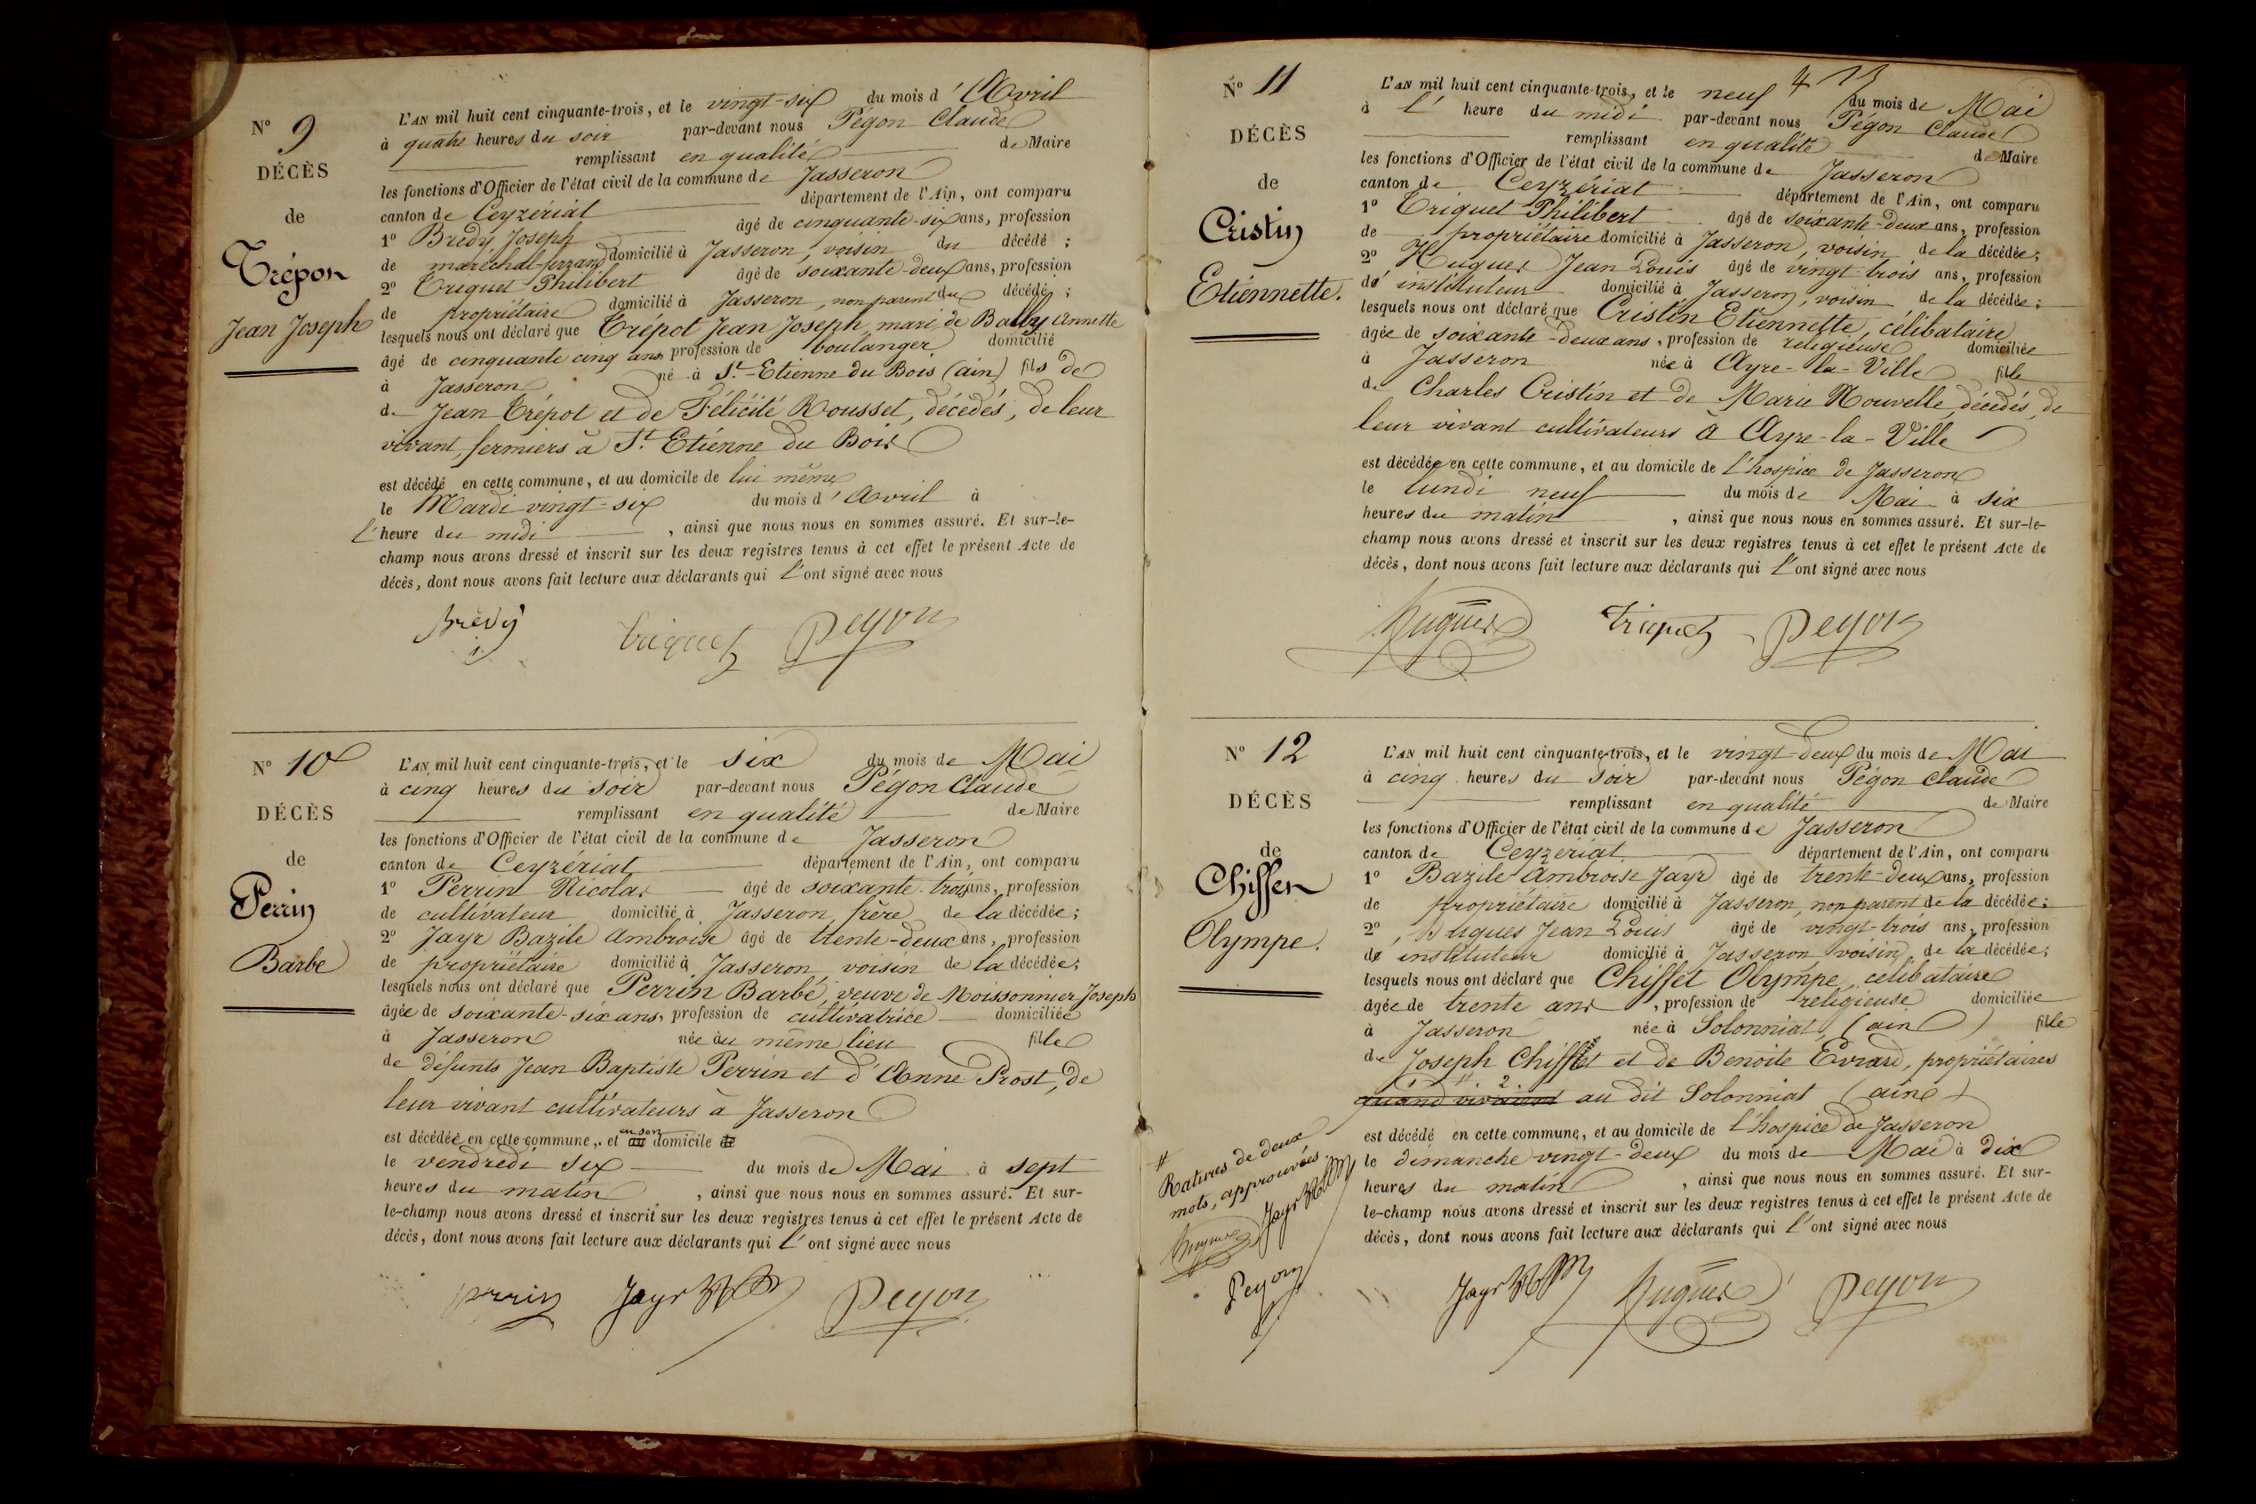 N° 9
DÉCÈS
de
Trépon
Jean Joseph
L'AN mil huit cent cinquante-trois, et le vingt-six du mois d'Avril
à quatre heures du soir par-devant nous Pégon Claude
remplissant en qualité de Maire
les fonctions d'Officier de l'état civil de la commune de Jasseron
canton de Ceyzériat département de l'Ain, ont comparu
1° Brédy Joseph âgé de cinquante-six ans, profession
de maréchal-ferrand domicilié à Jasseron, voisin du décédé ;
2° Triquet Philibert âgé de soixante-deux ans, profession
de propriétaire domicilié à Jasseron, non parent du décédé ;
lesquels nous ont déclaré que Trépot Jean Joseph, mari de Bally Annette
âgé de cinquante cinq ans profession de boulanger domicilié
à Jasseron né à St-Etienne du Bois (ain) fils de
d. Jean Trépot et de Félicité Rousset, décédés, de leur
vivant, fermiers à St. Etienne du Bois
est décédé en cette commune, et au domicile de lui même
le Mardi vingt-six du mois d'Avril à
l'heure du midi, ainsi que nous nous en sommes assuré. Et sur-le-
champ nous avons dressé et inscrit sur les deux registres tenus à cet effet le présent Acte de
décès, dont nous avons fait lecture aux déclarants qui l'ont signé avec nous
Brédy Triquet Pegon
N° 10
DÉCÈS
de
Perrin
Barbe
L'AN mil huit cent cinquante-trois, et le six du mois de Mai
à cinq heures du soir par-devant nous Pégon Claude
remplissant en qualité de Maire
les fonctions d'Officier de l'état civil de la commune de Jasseron
canton de Ceyzériat département de l'Ain, ont comparu
1° Perrin Nicolas âgé de soixante-trois ans, profession
de cultivateur domicilié à Jasseron, frère de la décédée ;
2° Jayr Bazile Ambroise âgé de trente-deux ans, profession
de propriétaire domicilié à Jasseron, voisin de la décédée ;
lesquels nous ont déclaré que Perrin Barbe, veuve de Moissonnier Joseph
âgée de soixante-six ans, profession de cultivatrice domiciliée
à Jasseron née au même lieu fille
de défunts Jean Baptiste Perrin et d'Anne Prost, de
leur vivant cultivateurs à Jasseron
est décédée en cette commune, et en son domicile
le vendredi six du mois de Mai à sept
heures du matin, ainsi que nous nous en sommes assuré. Et sur-
le-champ nous avons dressé et inscrit sur les deux registres tenus à cet effet le présent Acte de
décès, dont nous avons fait lecture aux déclarants qui l'ont signé avec nous
perrin Jayr Pegon
N° 11
DÉCÈS
de
Cristin
Etiennette.
L'AN mil huit cent cinquante-trois, et le neuf du mois de Mai
à l'heure du midi par-devant nous Pégon Claude
remplissant en qualité de Maire
les fonctions d'Officier de l'état civil de la commune de Jasseron
canton de Ceyzériat département de l'Ain, ont comparu
1° Triquet Philibert âgé de soixante-deux ans, profession
de propriétaire domicilié à Jasseron, voisin de la décédée ;
2° Hugues Jean Louis âgé de vingt-trois ans, profession
d' instituteur domicilié à Jasseron, voisin de la décédée ;
lesquels nous ont déclaré que Cristin Etiennette, célibataire
âgée de soixante-deux ans, profession de religieuse domiciliée
à Jasseron née à Ayre-la-Ville fille
de Charles Cristin et de Marie Nouvelle, décédés, de
leur vivant cultivateurs à Ayre-la-Ville
est décédée en cette commune, et au domicile de l'hospice de Jasseron
le lundi neuf du mois de Mai à six
heures du matin, ainsi que nous nous en sommes assuré. Et sur-le-
champ nous avons dressé et inscrit sur les deux registres tenus à cet effet le présent Acte de
décès, dont nous avons fait lecture aux déclarants qui l'ont signé avec nous
Hugues Triquet Pegon
N° 12
DÉCÈS
de
Chiffen
Olympe.
L'AN mil huit cent cinquante-trois, et le vingt-deux du mois de Mai
à cinq heures du soir par-devant nous Pégon Claude
remplissant en qualité de Maire
les fonctions d'Officier de l'état civil de la commune de Jasseron
canton de Ceyzériat département de l'Ain, ont comparu
1° Bazile Ambroise Jayr âgé de trente-deux ans, profession
de propriétaire domicilié à Jasseron, non parent de la décédée ;
2° Hugues Jean Louis âgé de vingt-trois ans, profession
d' instituteur domicilié à Jasseron, voisin de la décédée ;
lesquels nous ont déclaré que Chiffet Olympe, célibataire
âgée de trente ans, profession de religieuse domiciliée
à Jasseron née à Solonniat, (ain) fille
de Joseph Chiffet et de Benoite Evrard, propriétaires
quand vivaient au dit Solonniat (ain)
est décédé en cette commune, et au domicile de l'hospice de Jasseron
le dimanche vingt-deux du mois de Mai à dix
heures du matin, ainsi que nous nous en sommes assuré. Et sur-
le-champ nous avons dressé et inscrit sur les deux registres tenus à cet effet le présent Acte de
décès, dont nous avons fait lecture aux déclarants qui l'ont signé avec nous
# Ratures de deux
mots, approuvées.
Hugues Jayr
Pegon
Jayr Hugues Pegon